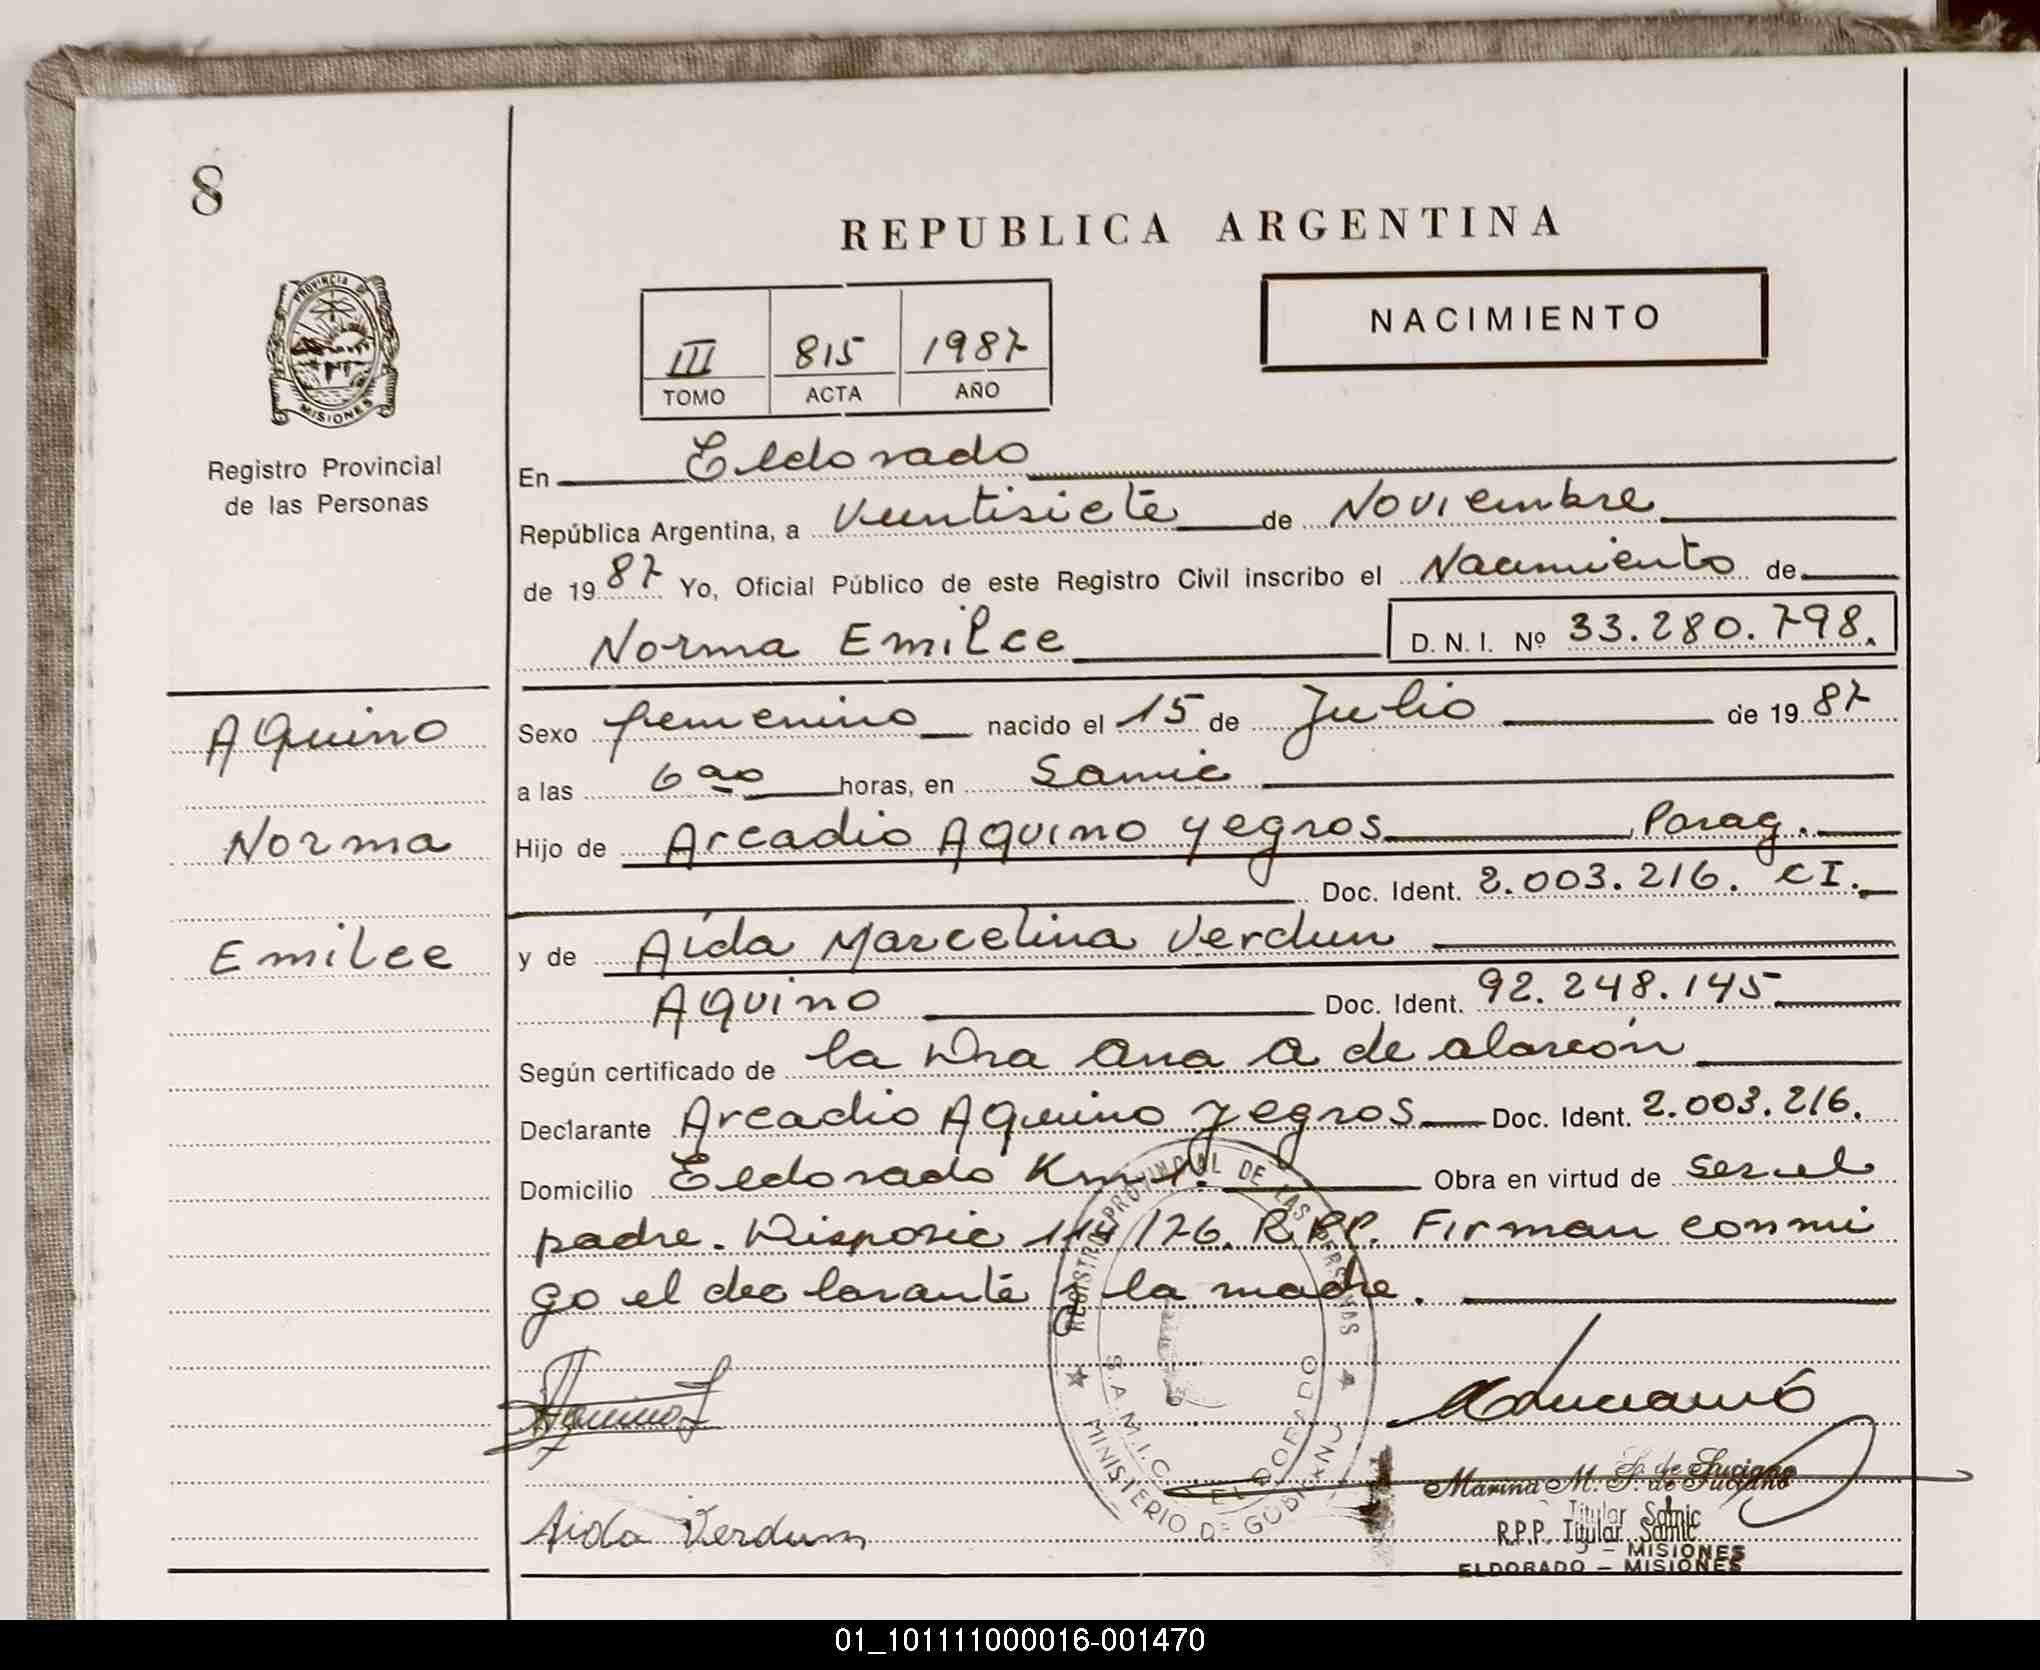 8
REPUBLICA ARGENTINA
NACIMIENTO
III 815 1987
TOMO ACTA AÑO
PROVINCIA DE
MISIONES
Registro Provincial
de las Personas
En Eldorado
República Argentina, a Veintisiete de Noviembre
de 1987 Yo, Oficial Público de este Registro Civil inscribo el Nacimiento de
Norma Emilce D. N. I. Nº 33.280.798.
Aquino
Norma
Emilce
Sexo femenino nacido el 15 de Julio de 1987
a las 6 00 horas, en Samic
Hijo de Arcadio Aquino Yegros Parag.
Doc. Ident. 2.003.216. CI.
y de Aída Marcelina Verdun
Aquino Doc. Ident. 92.248.145
Según certificado de la Dra Ana A de Alarcón
Declarante Arcadio Aquino Yegros Doc. Ident. 2.003.216.
Domicilio Eldorado Km 1. Obra en virtud de ser el
padre. Disposic /76. R.P.P. Firman conmi
go el declarante y la madre.
REGISTRO PROVINCIAL DE LAS PERSONAS
S.A.M.I.C. ELDORADO
MINISTERIO DE GOBIERNO
Aida Verdun
Marina M. S. de Luciano
R.P.P. Titular Samic
ELDORADO – MISIONES
01_101111000016-001470